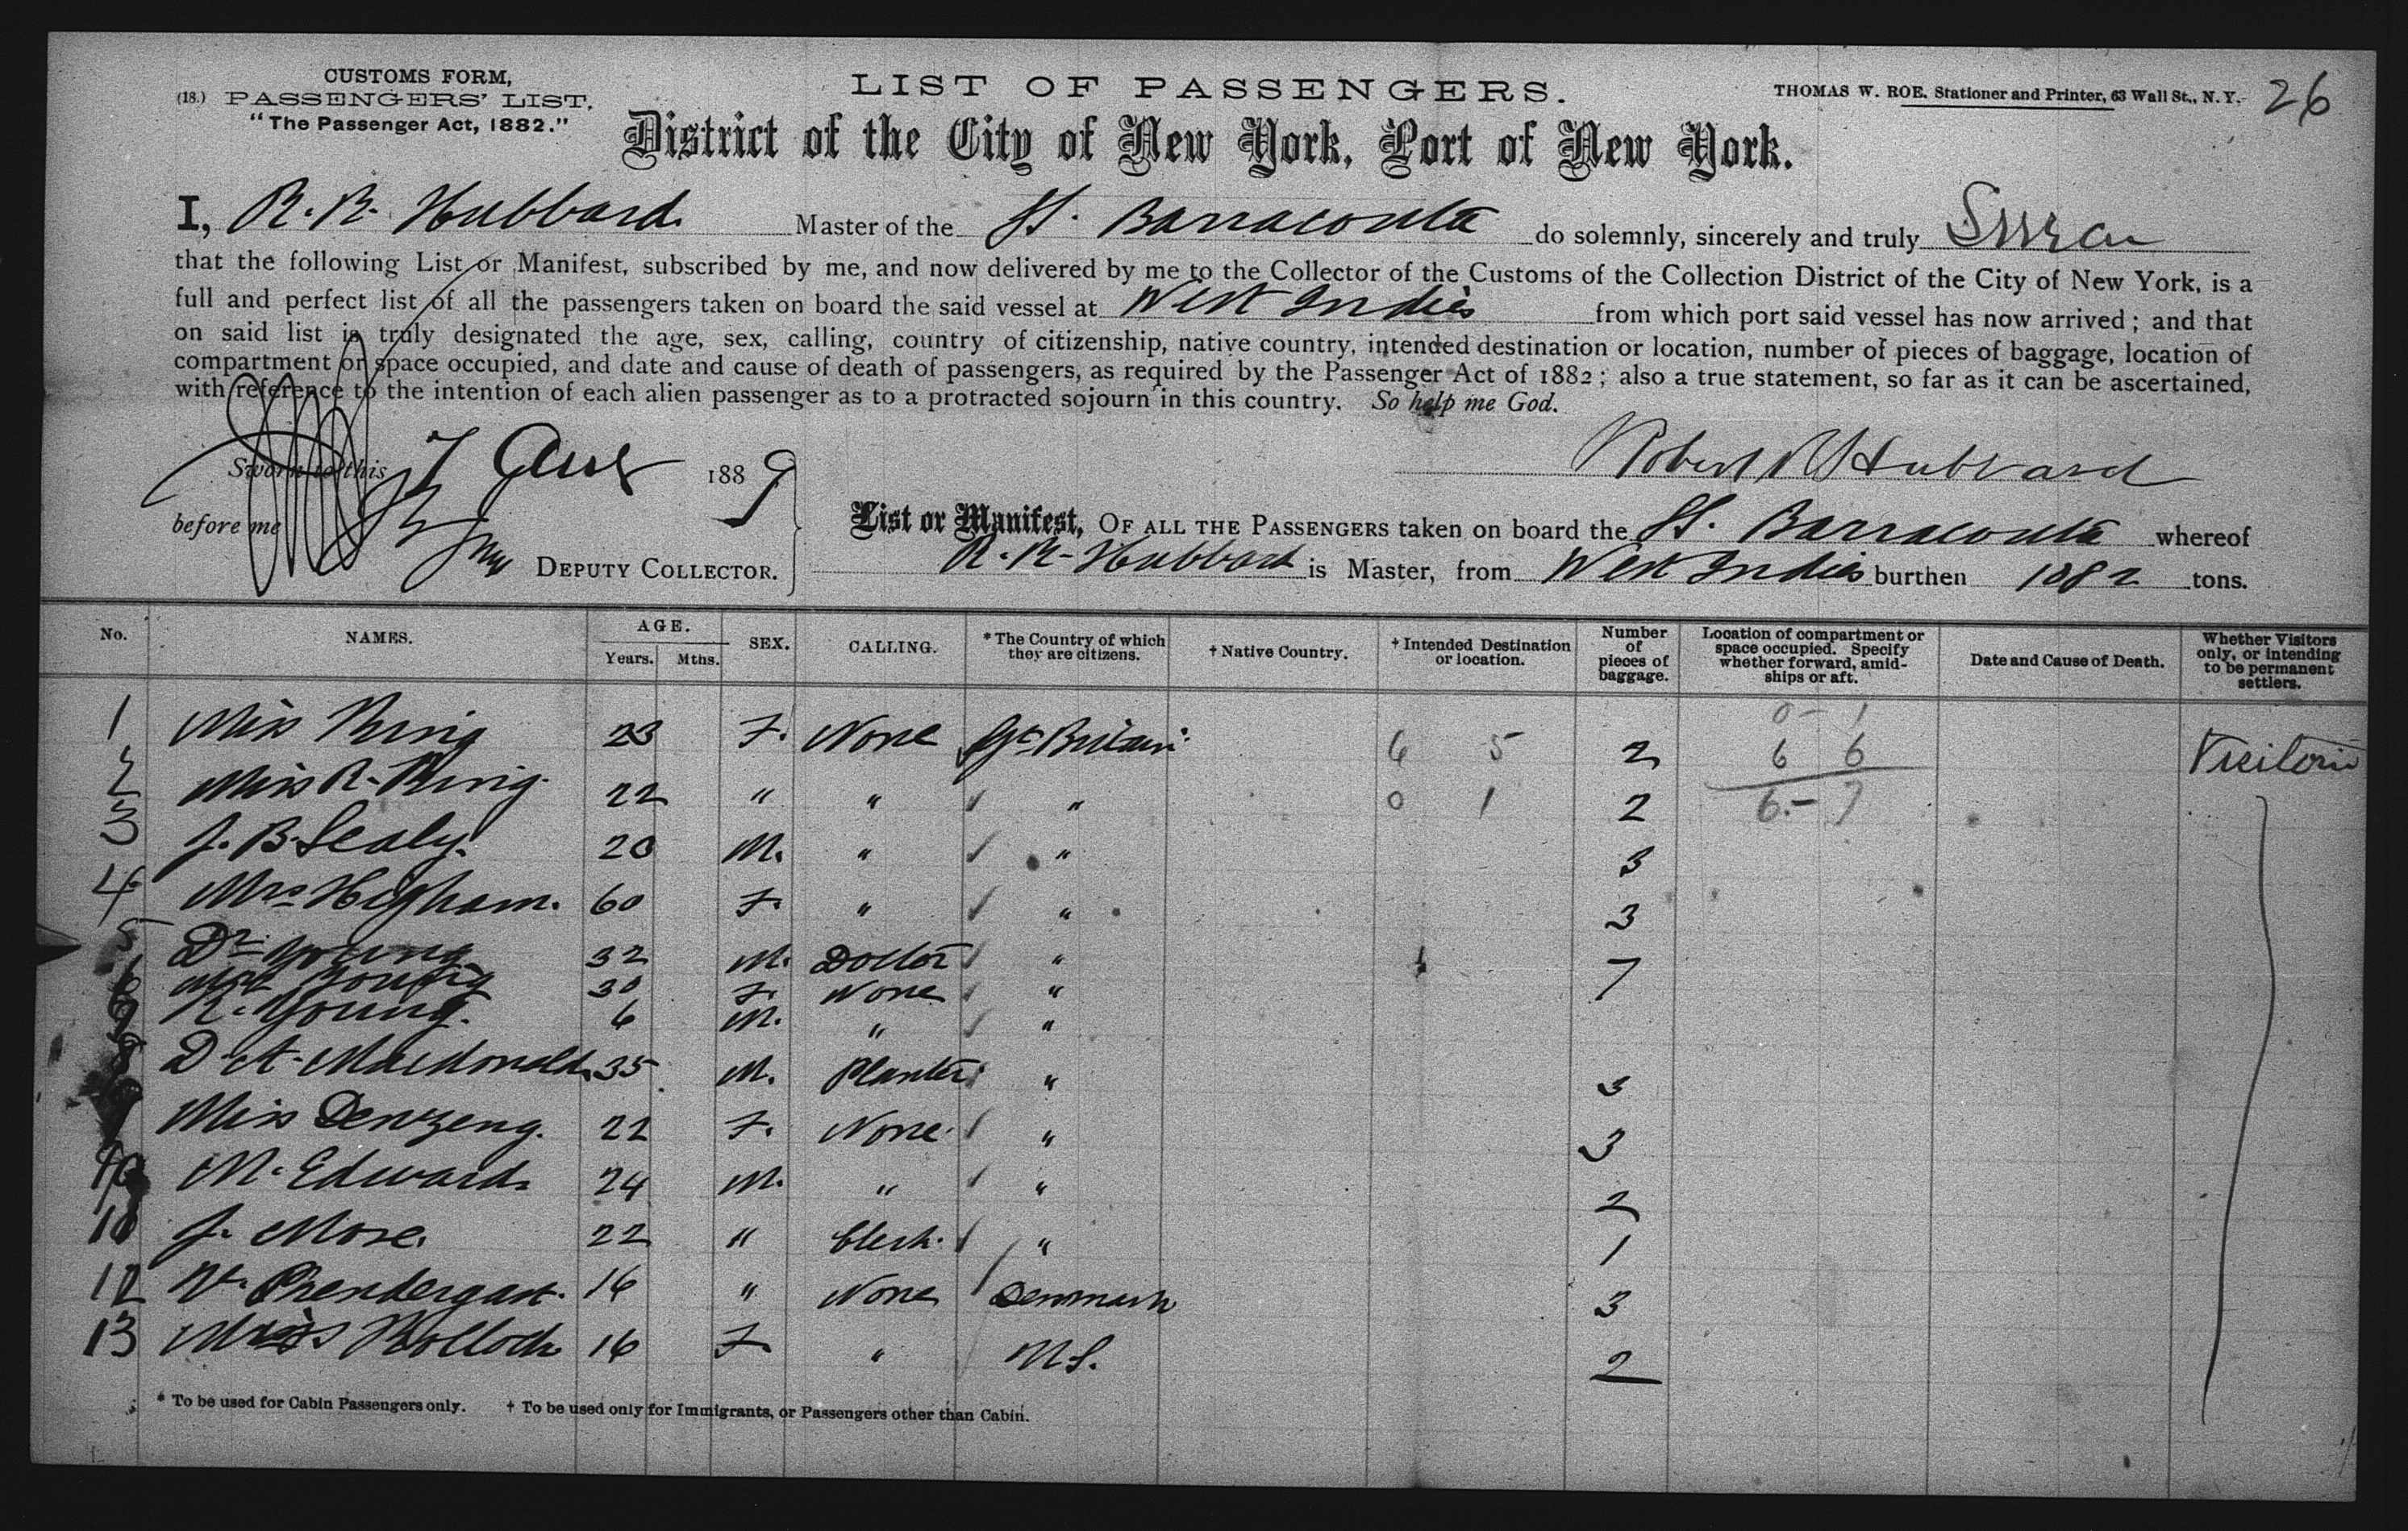 CUSTOMS FORM,
(18.) PASSENGERS' LIST.
"The Passenger Act, 1882."
LIST OF PASSENGERS.
THOMAS W. ROE. Stationer and Printer, 63 Wall St., N.Y.
26
District of the City of New York, Port of New York.
I, R. R. Hubbard Master of the St. Barracouta do solemnly, sincerely and truly Swear
that the following List or Manifest, subscribed by me, and now delivered by me to the Collector of the Customs of the Collection District of the City of New York, is a
full and perfect list of all the passengers taken on board the said vessel at West Indies from which port said vessel has now arrived; and that
on said list is truly designated the age, sex, calling, country of citizenship, native country, intended destination or location, number of pieces of baggage, location of
compartment or space occupied, and date and cause of death of passengers, as required by the Passenger Act of 1882; also a true statement, so far as it can be ascertained,
with reference to the intention of each alien passenger as to a protracted sojourn in this country. So help me God.
Sworn to this 7 1889
Robert R Hubbard
before me
DEPUTY COLLECTOR.
List or Manifest, OF ALL THE PASSENGERS taken on board the St. Barracouta whereof
R. R. Hubbard is Master, from West Indies burthen 1082 tons.
No. NAMES. AGE. Years. Mths. SEX. CALLING. * The Country of which they are citizens. † Native Country. † Intended Destination or location. Number of pieces of baggage. Location of compartment or space occupied. Specify whether forward, amidships or aft. Date and Cause of Death. Whether Visitors only, or intending to be permanent settlers.
0 - 1
1 Miss 23 F. None Gt. Britain 6 5 2 6 6 Visitors
2 Miss R. 22 " " " 0 1 2 6 - 7
3 J. B. Sealy. 20 M. " " 3
4 Mrs Higham. 60 F. " " 3
5 Dr Young 32 M. Doctor " 7
6 Mrs Young 30 F. None "
7 R. Young. 6 M. " "
8 D. A. Macdonald. 35 M. Planter " 3
9 Miss Denzeng. 22 F. None " 3
10 M. Edwards 24 M. " " 2
J. More. 22 " Clerk. " 1
12 Prendergast. 16 " None Denmark 3
13 Miss 16 F " U.S. 2
* To be used for Cabin Passengers only. † To be used only for Immigrants, or Passengers other than Cabin.